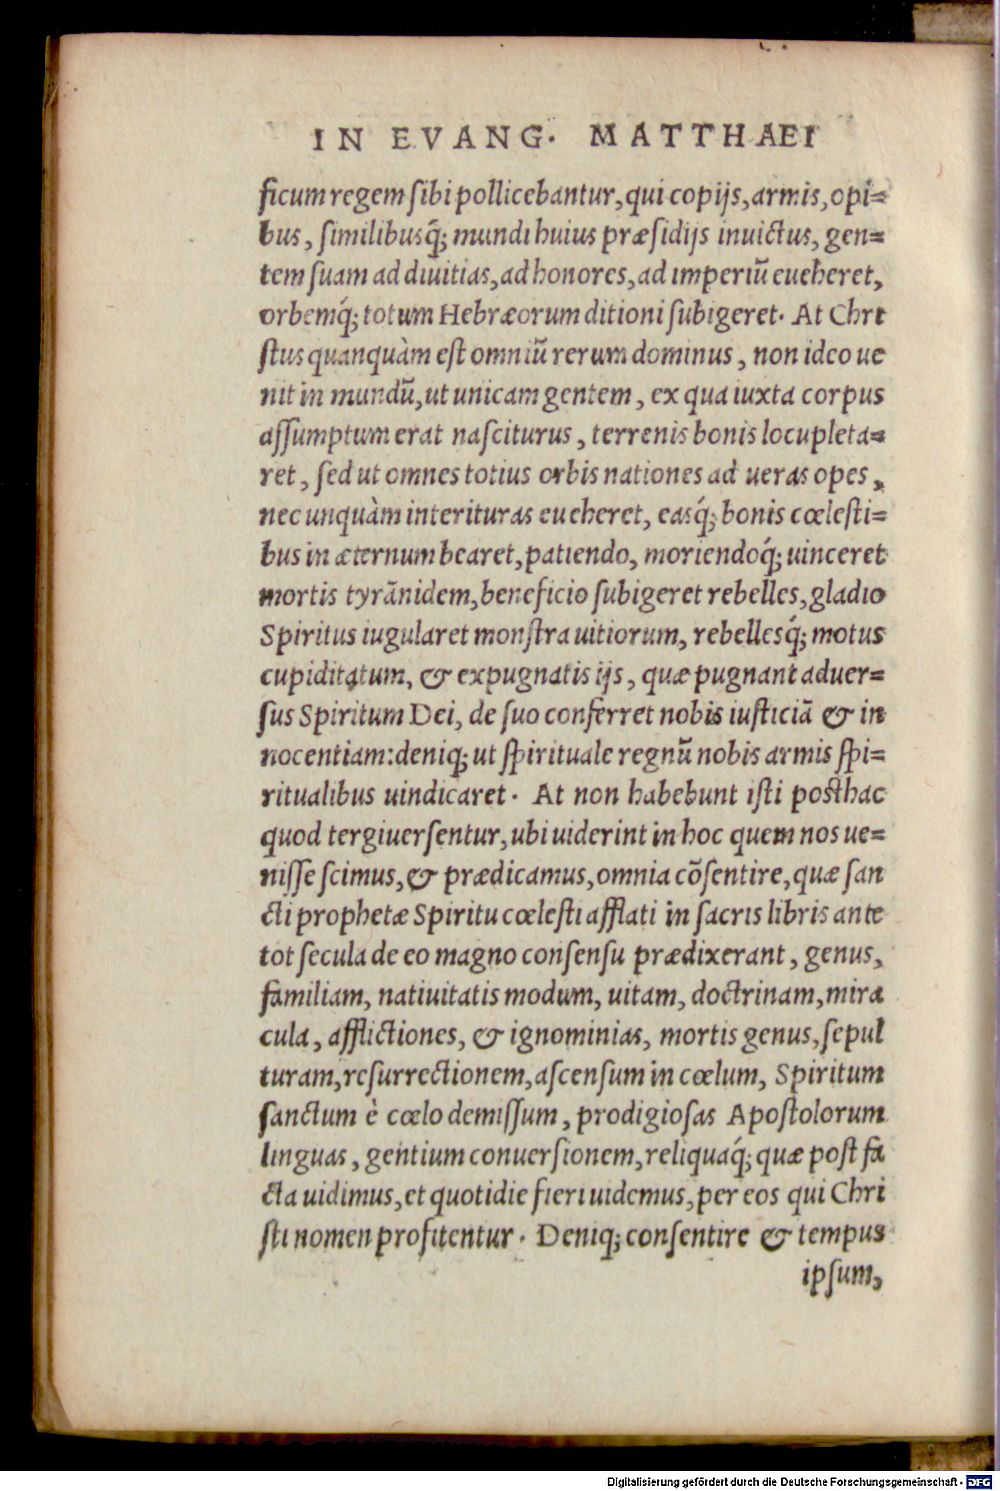 IN EVANG. MATTHAEI
ficum regem ſibi pollicebantur, qui copijs, armis, opi=
bus, ſimilibusq́; mundi huius præſidijs inuictus, gen=
tem ſuam ad diuitias, ad honores, ad imperiũ eueheret,
orbemq́; totum Hebræorum ditioni ſubigeret. At Chri
ſtus quanquàm eſt omniũ rerum dominus, non ideo ue
nit in mundũ, ut unicam gentem, ex qua iuxta corpus
aſſumptum erat naſciturus, terrenis bonis locupleta=
ret, ſed ut omnes totius orbis nationes ad ueras opes,
nec unquàm interituras eueheret, easq́; bonis cœleſti=
bus in æternum bearet, patiendo, moriendoq́; uinceret
mortis tyrãnidem, beneficio ſubigeret rebelles, gladio
Spiritus iugularet monſtra uitiorum, rebellesq́; motus
cupiditatum, & expugnatis ijs, quæ pugnant aduer=
ſus Spiritum Dei, de ſuo conferret nobis iuſticiã & in
nocentiam: deniq; ut ſpirituale regnũ nobis armis ſpi=
ritualibus uindicaret. At non habebunt iſti poſthac
quod tergiuerſentur, ubi uiderint in hoc quem nos ue=
niſſe ſcimus, & prædicamus, omnia cõſentire, quæ ſan
cti prophetæ Spiritu cœleſti afflati in ſacris libris ante
tot ſecula de eo magno conſenſu prædixerant, genus,
familiam, natiuitatis modum, uitam, doctrinam, mira
cula, afflictiones, & ignominias, mortis genus, ſepul
turam, reſurrectionem, aſcenſum in cœlum, Spiritum
ſanctum è cœlo demiſſum, prodigioſas Apoſtolorum
linguas, gentium conuerſionem, reliquaq́; quæ poſt fa
cta uidimus, et quotidie fieri uidemus, per eos qui Chri
ſti nomen profitentur. Deniq; conſentire & tempus
ipſum,
Digitalisierung gefördert durch die Deutsche Forschungsgemeinschaft - DFG